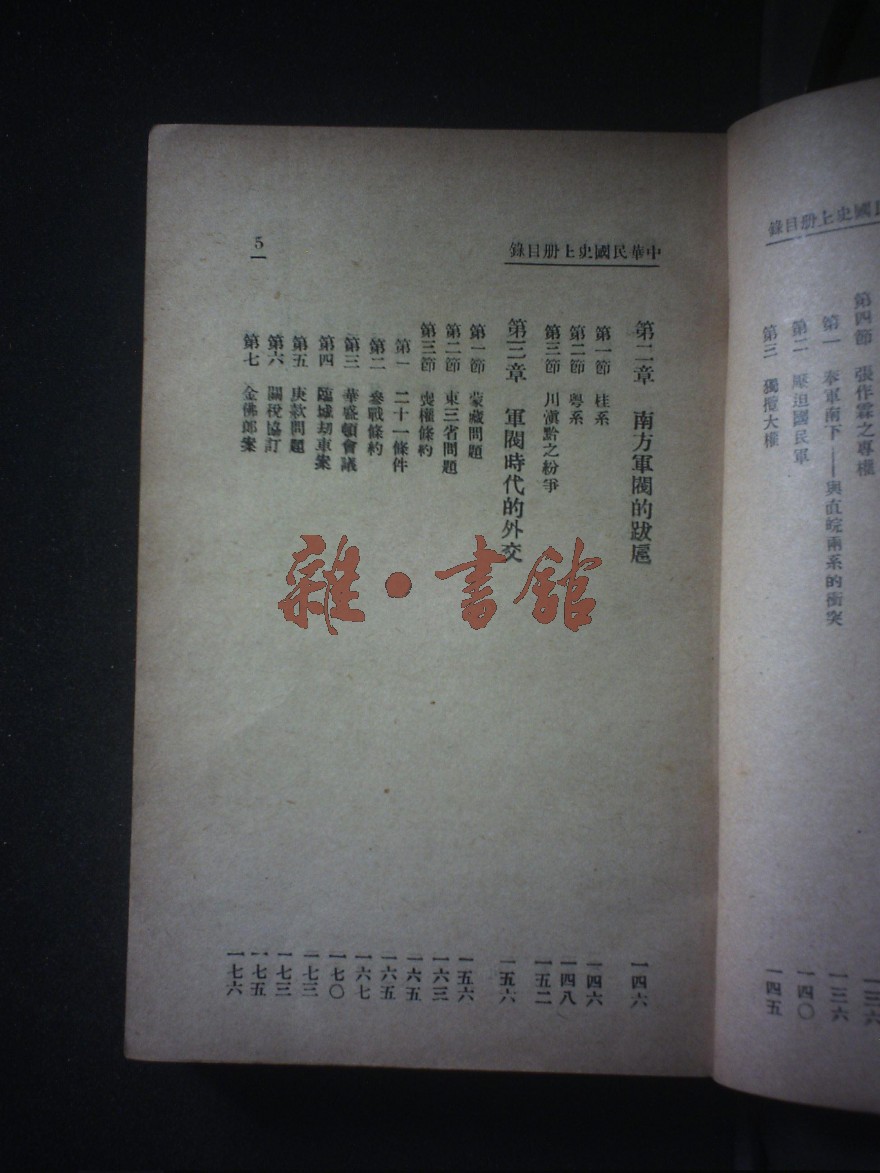 國史上册目錄
第四節 張作霖之專權 一三六
第一 奉軍南下——與直皖兩系的衝突 一三六
第二 壓迫國民軍 一四〇
第三 獨攬大權 一四五
中華民國史上册目錄
5
第二章 南方軍閥的跋扈 一四六
第一節 桂系 一四六
第二節 粵系 一四八
第三節 川滇黔之紛爭 一五二
第三章 軍閥時代的外交 一五六
第一節 蒙藏問題 一五六
第二節 東三省問題 一六三
第三節 喪權條約 一六五
第一 二十一條件 一六五
第二 參戰條約 一六七
第三 華盛頓會議 一七〇
第四 臨城劫車案 一七三
第五 庚款問題 一七三
第六 關稅協訂 一七五
第七 金佛郎案 一七六
雜·書館